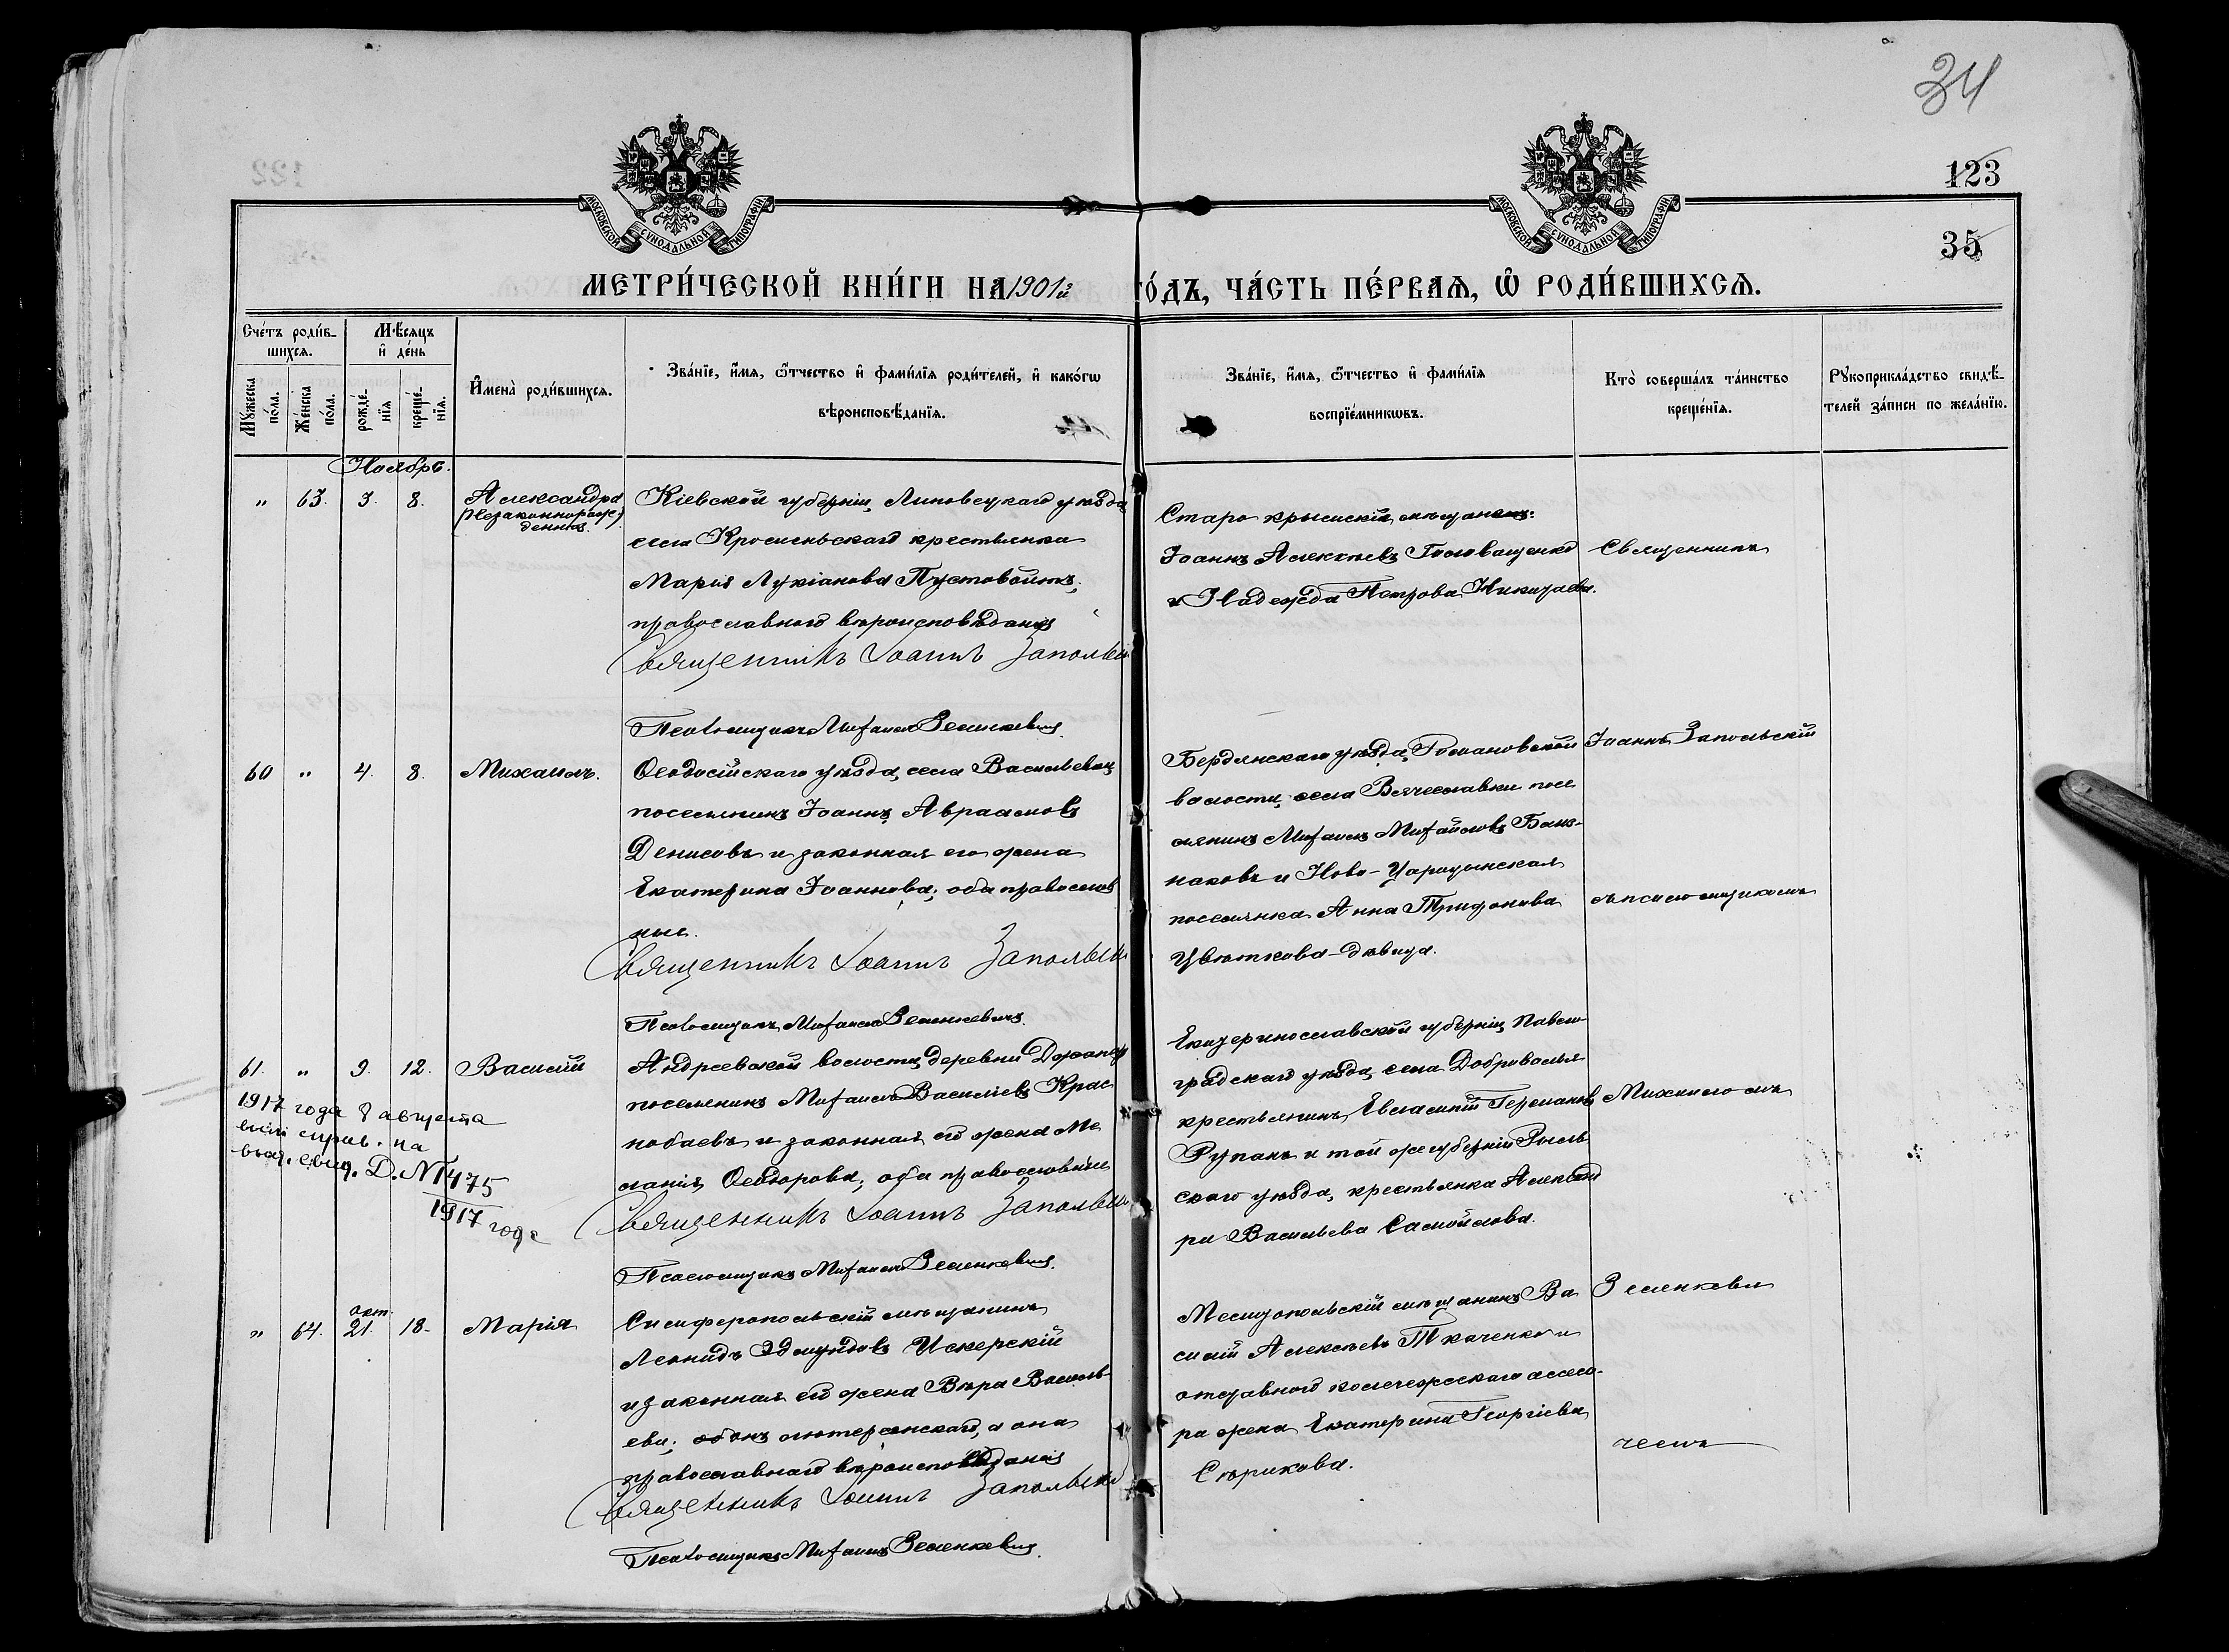 34
123
35
МОСКОВСКОЙ СѴНОДАЛЬНОЙ ТИПОГРАФІИ
МОСКОВСКОЙ СѴНОДАЛЬНОЙ ТИПОГРАФІИ
МЕТРИ́ЧЕСКОЙ КНИ́ГИ НА 1901й ГО́ДЪ, ЧА́СТЬ ПЕ́РВАѦ, Ѽ РОДИ́ВШИХСѦ.
Сче́тъ роди́в-
шихсѧ.
Мѣ́сѧцъ
и҆ де́нь
Мꙋ́жеска
по́ла.
Же́нска
по́ла.
рожде́-
нїѧ
креще́-
нїѧ.
И҆мена̀ роди́вшихсѧ.
Зва́нїе, и҆́мѧ, ѻ҆́тчество и҆ фами́лїѧ роди́телей, и҆ како́гѡ
вѣроисповѣ́данїѧ.
Зва́нїе, и҆́мѧ, ѻ҆́тчество и҆ фами́лїѧ
воспрїе́мникѡвъ.
Кто̀ соверша́лъ та́инство
креще́нїѧ.
Рꙋкоприкла́дство свидѣ́-
телей за́писи по жела́нїю.
Ноябрь.
" 63. 3. 8. Александра
(Незаконнорож-
денная)
Кіевской губерніи, Липовецкаго уѣзда
села крестьянка
Марія Лукіанова Пустовойтъ,
православнаго вѣроисповѣданія
Священникъ Іоаннъ Запольскій
Псаломщикъ Михаилъ Зеленкевичъ.
Старо крымскій мѣщанинъ
Іоаннъ Алексѣевъ Головащенко
и Надежда Петрова
Священникъ
60 " 4. 8. Михаилъ.
Ѳеодосійскаго уѣзда, села Васильевки
поселянинъ Іоаннъ Авраамовъ
Денисовъ и законная его жена
Екатерина Іоаннова; оба православ
ные.
Священникъ Іоаннъ Запольскій
Псаломщикъ Михаилъ Зеленкевичъ.
Бердянскаго уѣзда, Романовской
волости, села Вячеславки посе
лянинъ Михаилъ Михайловъ
и Ново-Царицынская
поселянка Анна Трифонова
Цвѣткова-дѣвица.
Іоаннъ Запольскій
съ псаломщикомъ
61. " 9. 12. Василій
1917 года 8 августа
выд. свид. Д. № 1475
1917 года
Андреевской волости, деревни
поселянинъ Михаилъ Василіевъ Крас
нобаевъ и законная его жена Ме
ланія Ѳеодорова; оба православные
Священникъ Іоаннъ Запольскій
Псаломщикъ Михаилъ Зеленкевичъ.
Екатеринославской губерніи, Павло
градскаго уѣзда, села Доброволья
крестьянинъ Евлампій Германовъ
и той же губерніи
скаго уѣзда, крестьянка Александ
ра Васильева Самойлова.
Михаиломъ
" 64. окт. 21. 18. Марія
Симферопольскій мѣщанинъ
Леонидъ Эдмундовъ Искерскій
и законная его жена Вѣра Василь
ева; онъ лютеранскаго, а она
православнаго вѣроисповѣданія
Священникъ Іоаннъ Запольскій
Псаломщикъ Михаилъ Зеленкевичъ.
Мелитопольскій мѣщанинъ Ва
силій Алексѣевъ Ткаченко и
отставного коллежскаго ассесо-
ра жена Екатерина Георгіева
Сѣрикова.
Зеленкеви
чемъ